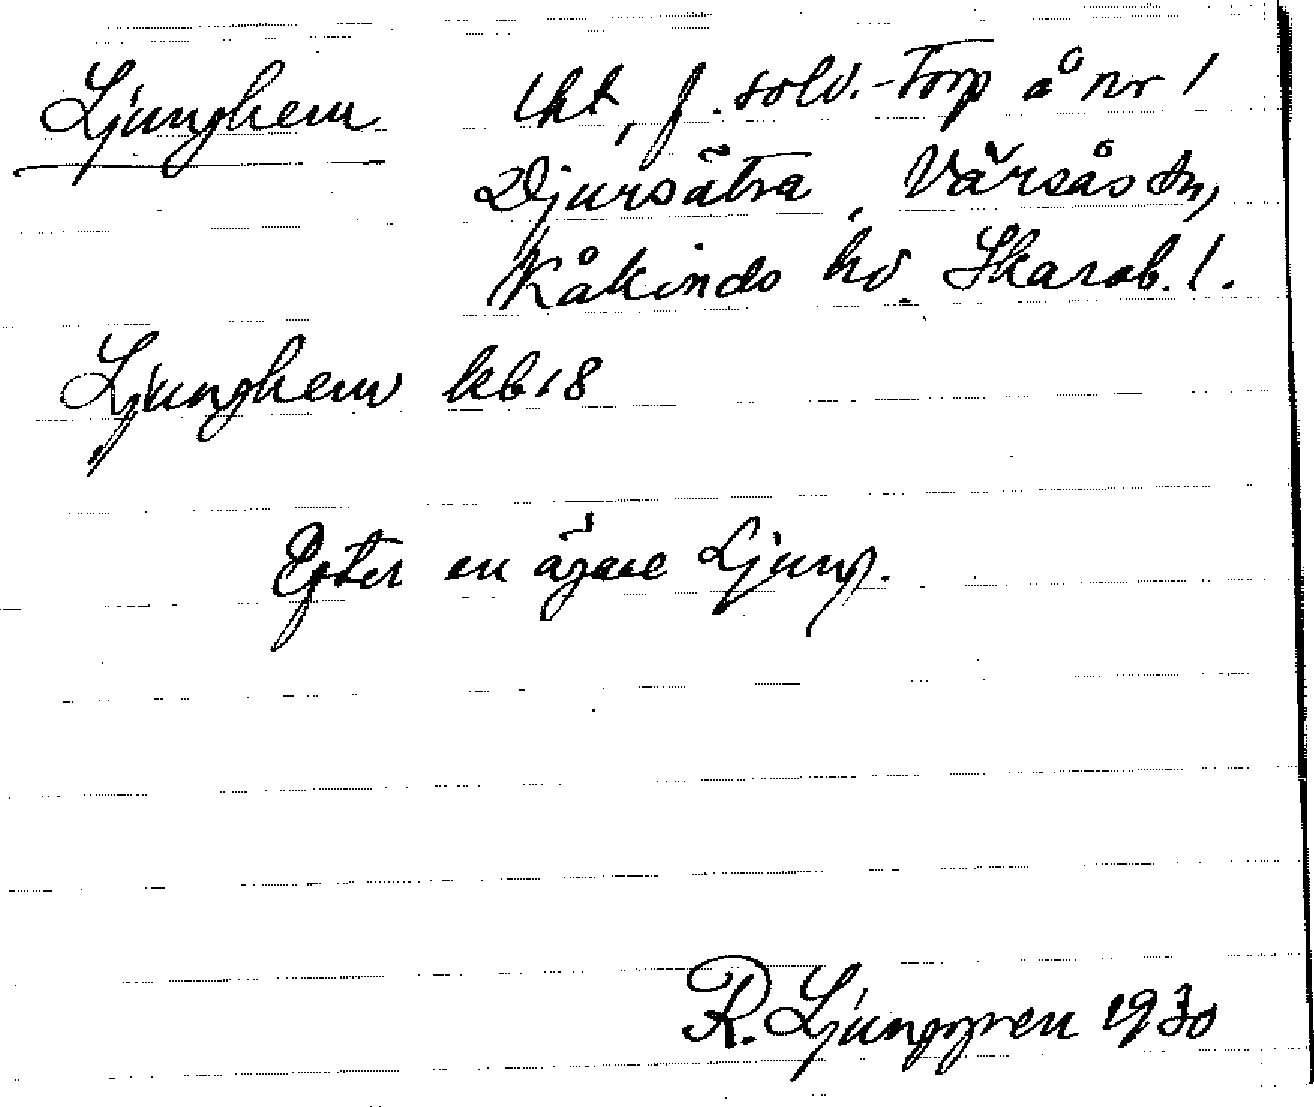 Ljunghem lht, f. sold.-torp å nr 1
Djursätra, Värsås sn,
Kåkinds hd. Skarab. l.
Ljunghem kb 18
Efter en ägare Ljung.
R. Ljunggren 1930